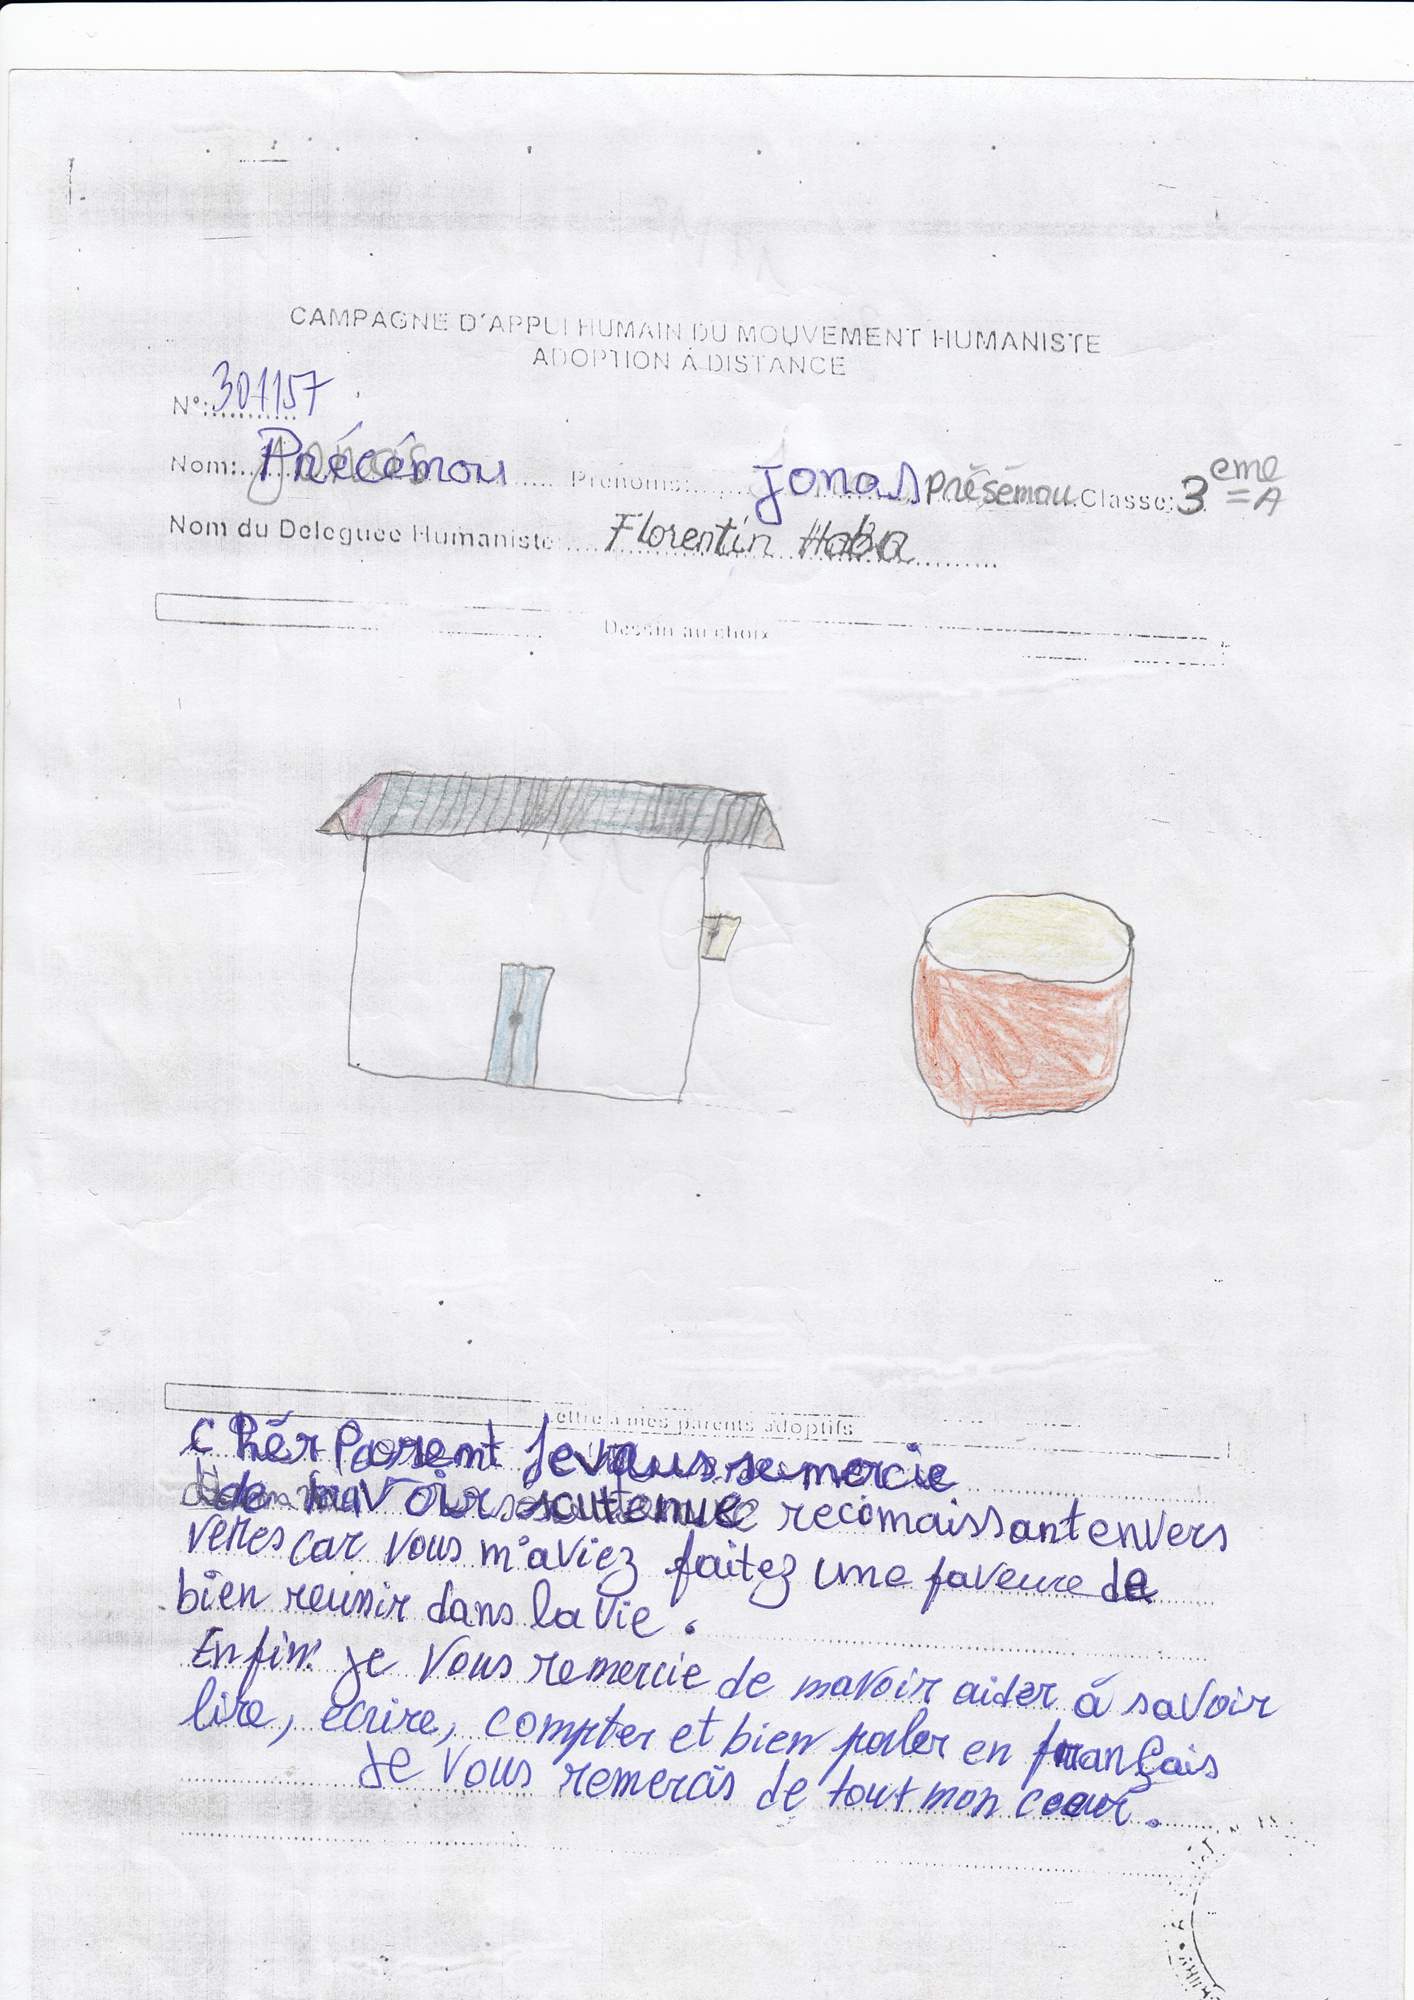 CAMPAGNE D'APPUI HUMAIN DU MOUVEMENT HUMANISTE
ADOPTION À DISTANCE
N°: 301157
Nom: Précémou Prénoms: Jonas Présémou Classe: 3eme = A
Nom du Déléguée Humaniste Florentin Haba
Dessin au choix
Lettre à mes parents adoptifs
c hér Parent Je vous remercie
de mavoir soutenue reconnaissant envers
venes car vous m'aviez faitez une faveure de
bien reunir dans la vie.
Enfin: je vous remercie de mavoir aider à savoir
lire, ecrire, compter et bien parler en français
Je vous remercis de tout mon coeur.